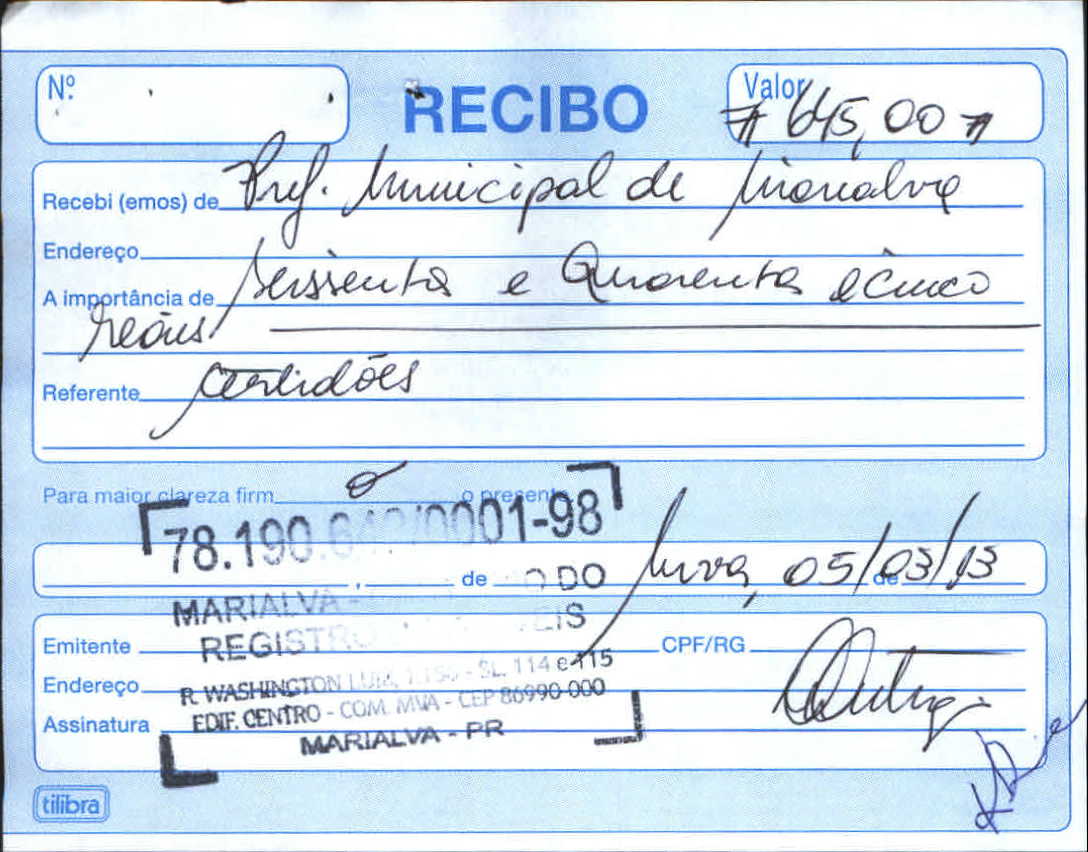 Nº
RECIBO
Valor
# 645,00 #
Recebi (emos) de Pref. Municipal de Marialva
Endereço
A importância de Seissentos e Quarenta e Cinco
Reais
Referente Certidões
Para maior clareza firm o o presente
78.190. /0001-98
de
O DO
Mva, 05/03/13
de
MARIALVA -
REGISTRO
EIS
Emitente
CPF/RG
R. WASHINGTON LUIZ, - SL. 114 e 115
Endereço
EDIF. CENTRO - COM. MVA - CEP 86990-000
Assinatura
MARIALVA - PR
tilibra